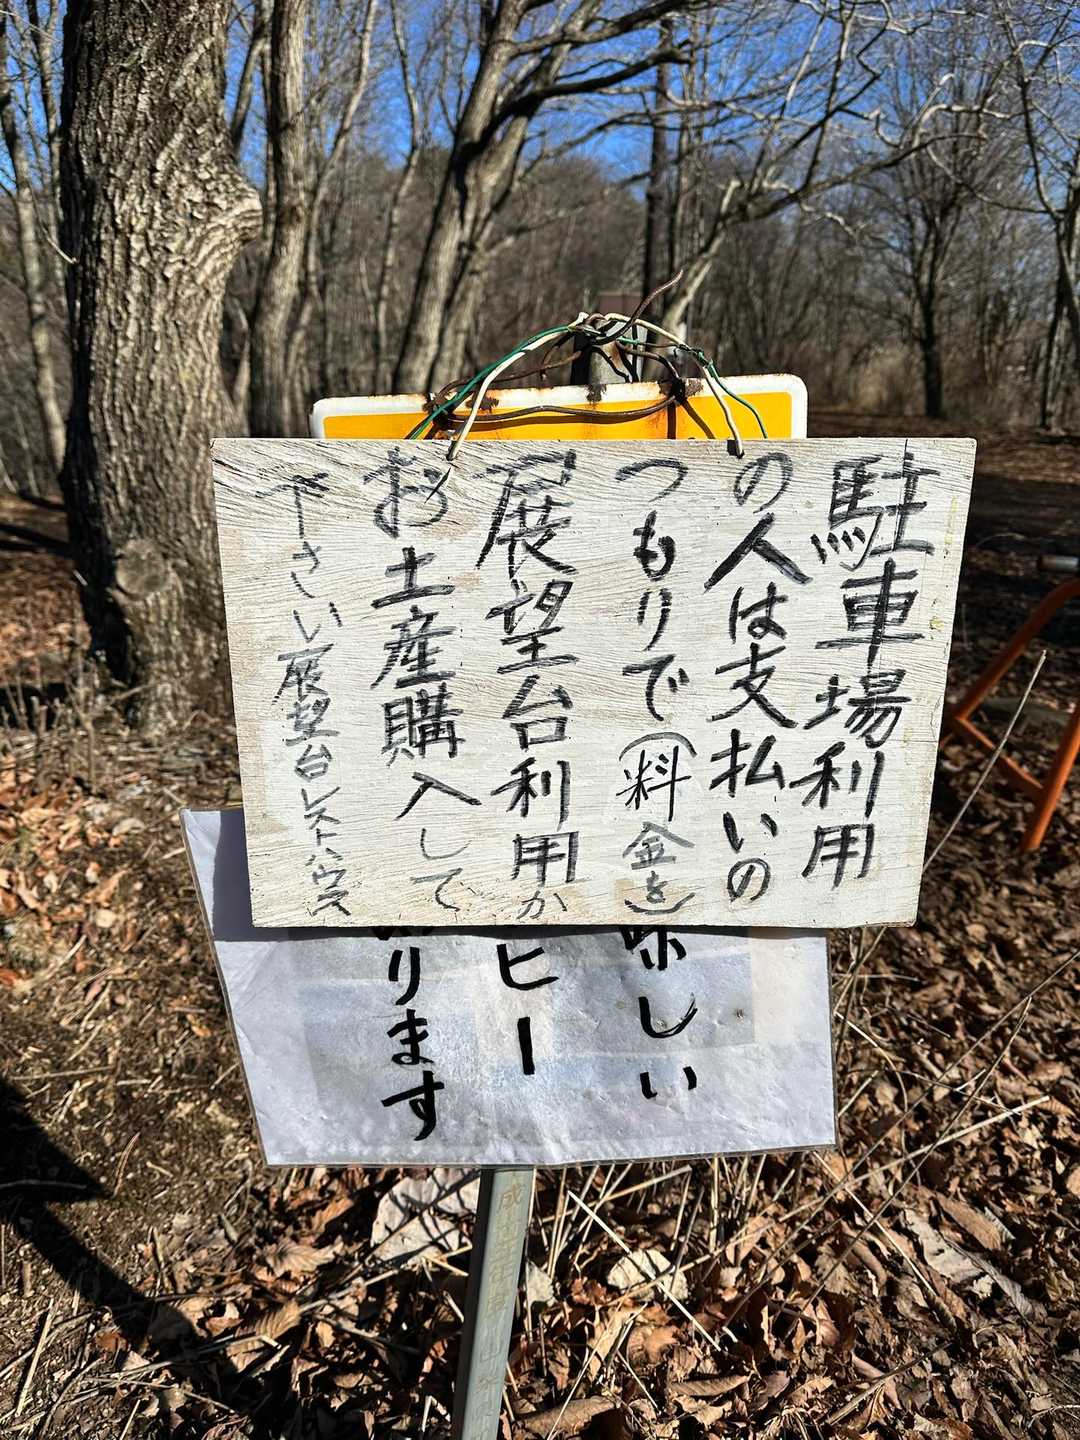 駐車場利用
の人は支払いの
つもりで(料金を)
展望台利用か
お土産購入して
下さい展望台レストハウス
味しい
ヒー
ります